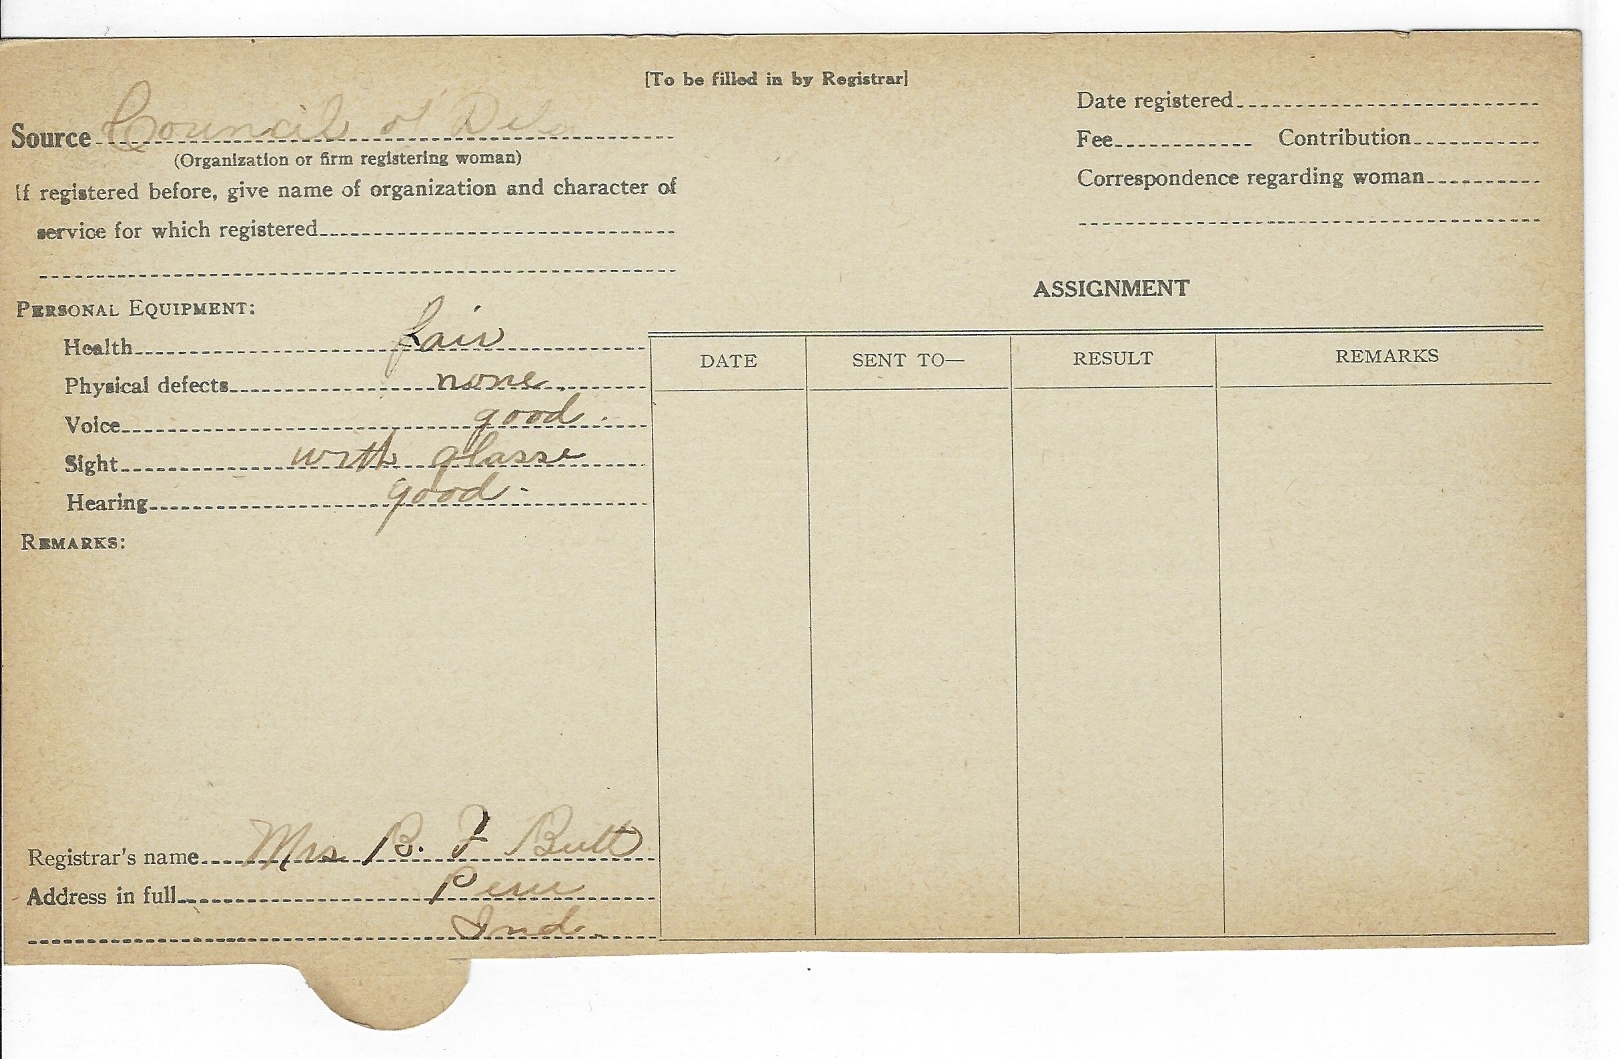 [To be filled in by Registrar]
Source Council of
(Organization or firm registering woman)
If registered before, give name of organization and character of
service for which registered
PERSONAL EQUIPMENT:
Health fair
Physical defects none.
Voice good.
Sight with glasse
Hearing good.
REMARKS:
Registrar's name Mrs B. F Butt
Address in full Peru
Ind.
Date registered
Fee Contribution
Correspondence regarding woman
ASSIGNMENT
DATE SENT TO— RESULT REMARKS